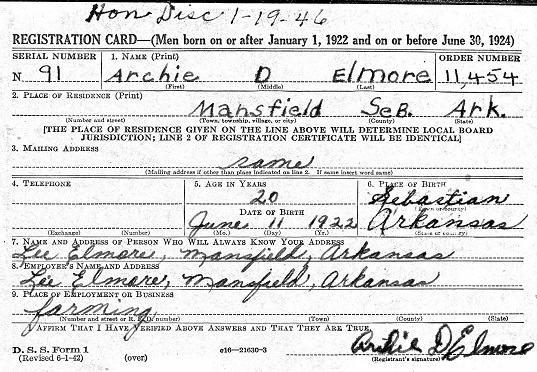 Hon Disc 1-19-46
REGISTRATION CARD—(Men born on or after January 1, 1922 and on or before June 30, 1924)
SERIAL NUMBER 1. NAME (Print) ORDER NUMBER
N 91 Archie D Elmore 11,454
(First) (Middle) (Last)
2. PLACE OF RESIDENCE (Print)
Mansfield Seb. Ark.
(Number and street) (Town, township, village, or city) (County) (State)
[THE PLACE OF RESIDENCE GIVEN ON THE LINE ABOVE WILL DETERMINE LOCAL BOARD
JURISDICTION; LINE 2 OF REGISTRATION CERTIFICATE WILL BE IDENTICAL]
3. MAILING ADDRESS
same
(Mailing address if other than place indicated on line 2. If same insert word same)
4. TELEPHONE 5. AGE IN YEARS 6. PLACE OF BIRTH
20 Sebastian
DATE OF BIRTH (Town or county)
June 11 1922 Arkansas
(Exchange) (Number) (Mo.) (Day) (Yr.) (State or country)
7. NAME AND ADDRESS OF PERSON WHO WILL ALWAYS KNOW YOUR ADDRESS
Lee Elmore, Mansfield, Arkansas
8. EMPLOYER'S NAME AND ADDRESS
Lee Elmore, Mansfield, Arkansas
9. PLACE OF EMPLOYMENT OR BUSINESS
farming
(Number and street or R. F. D. number) (Town) (County) (State)
I AFFIRM THAT I HAVE VERIFIED ABOVE ANSWERS AND THAT THEY ARE TRUE.
Archie D Elmore
D. S. S. Form 1
(Revised 6-1-42) (over) c16—21630-3 (Registrant's signature)